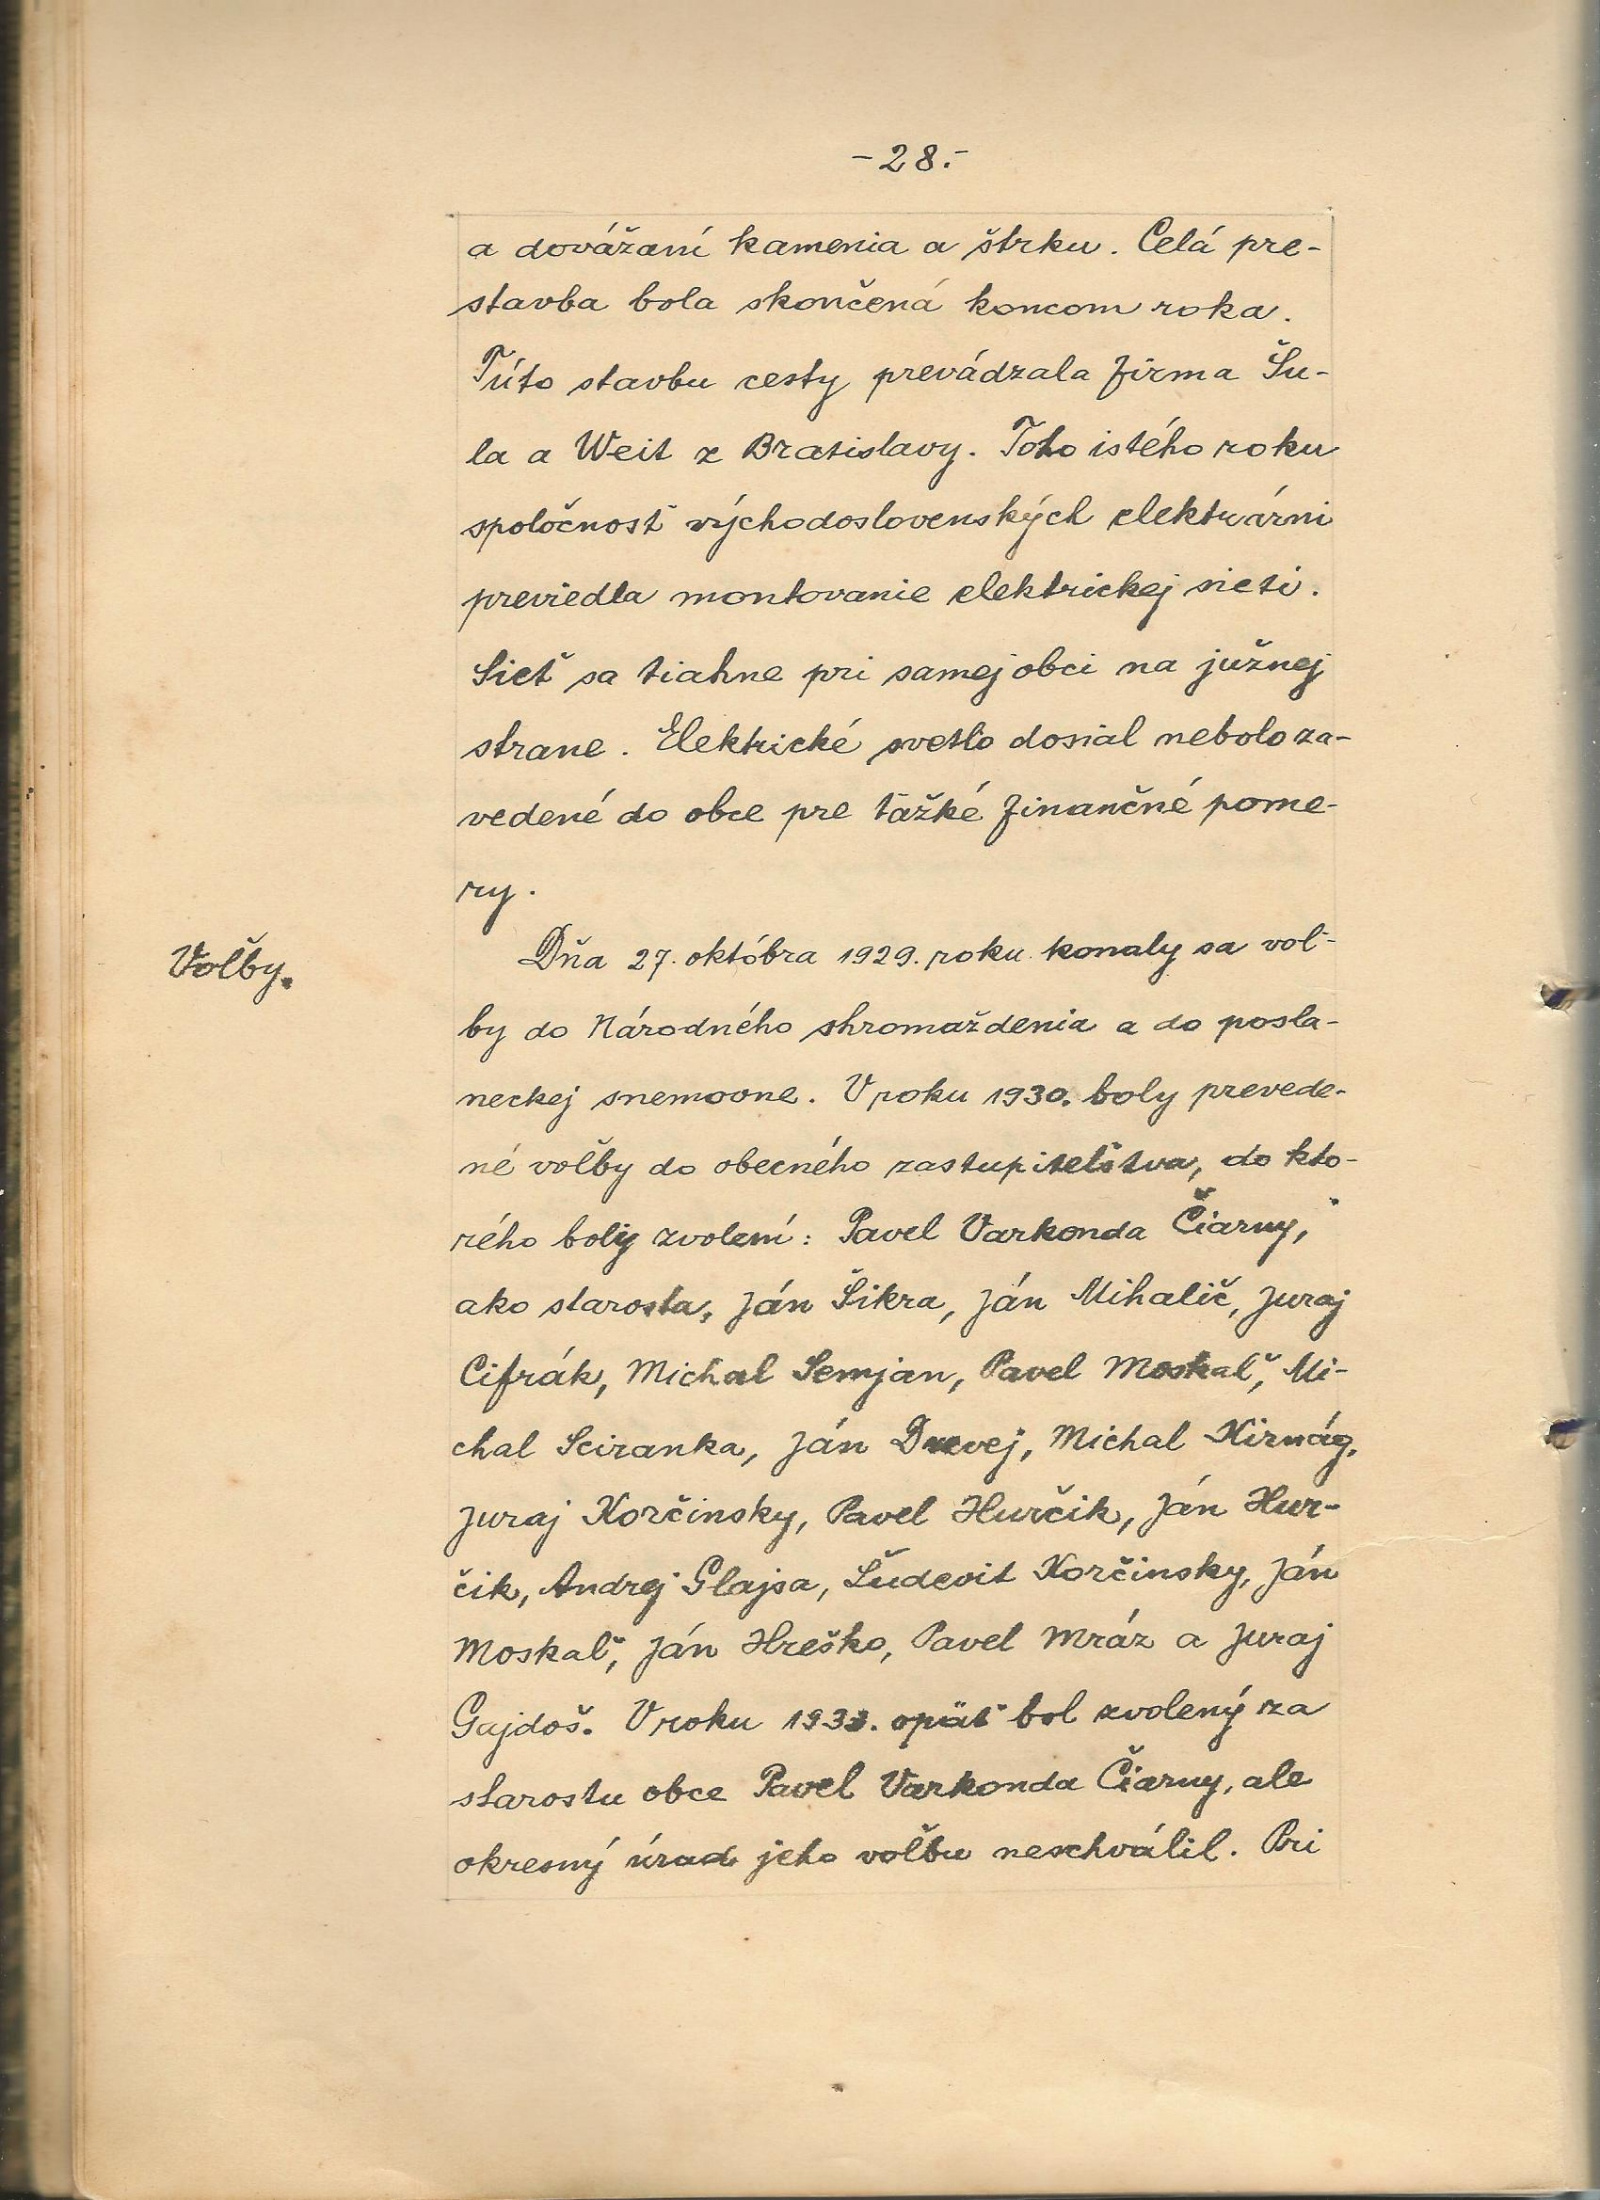 -28.-
a dovážaní kamenia a štrku. Celá pre-
stavba bola skončená koncom roka.
Túto stavbu cesty prevádzala firma Šu-
la a Weit z Bratislavy. Toho istého roku
spoločnosť východoslovenských elektrární
previedla montovanie elektrickej sieti.
Sieť sa tiahne pri samej obci na južnej
strane. Elektrické svetlo dosial nebolo za-
vedené do obce pre ťažké finančné pome-
ry.
Voľby.
Dňa 27. októbra 1929. roku konaly sa voľ-
by do Národného shromaždenia a do posla-
neckej snemovne. V roku 1930. boly prevede-
né voľby do obecného zastupiteľstva, do kto-
rého boly zvolení: Pavel Varkonda Čiarny,
ako starosta, Ján Šikra, Ján Mihalič, Juraj
Cifrák, Michal Semjan, Pavel Moskaľ, Mi-
chal Sciranka, Ján Duvej, Michal Kirnág,
Juraj Korčinsky, Pavel Hurčik, Ján Hur-
čik, Andrej Glajsa, Ľudevit Korčinsky, Ján
Moskaľ, Ján Hreško, Pavel Mráz a Juraj
Gajdoš. V roku 1933. opäť bol zvolený za
starostu obce Pavel Varkonda Čiarny, ale
okresný úrad jeho voľbu neschválil. Pri